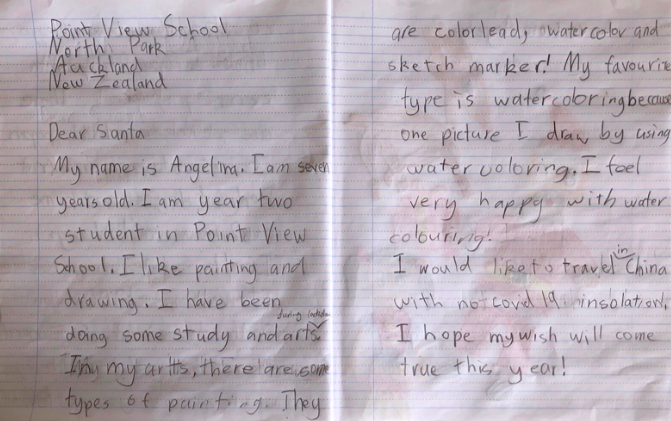 Point View School
North Park
Auckland
New Zealand
Dear Santa
My name is Angelina. I am seven
years old. I am year two
student in Point View
School. I like painting and
drawing. I have been
during lockdown
doing some study and arts.
In my arts, there are some
types of painting. They
are colorlead, watercolor and
sketch marker! My favourite
type is watercoloringbecause
one picture I draw by using
watercoloring. I feel
very happy with water
colouring!
in
I would like to travel China
with no covid 19 insolation.
I hope my wish will come
true this year!